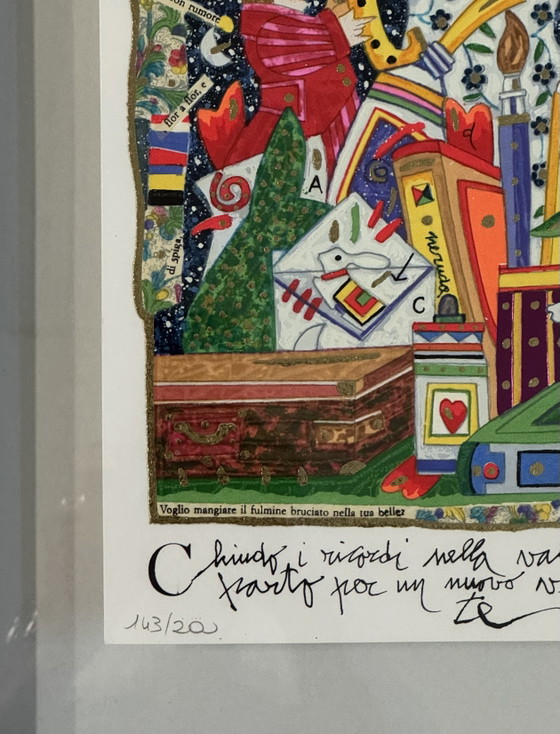 non rumore
fior a fior, e
di spiga,
A
neruda
C
Voglio mangiare il fulmine bruciato nella tua bellez
Chiudo i ricordi nella va
parto per un nuovo v
te
143/200